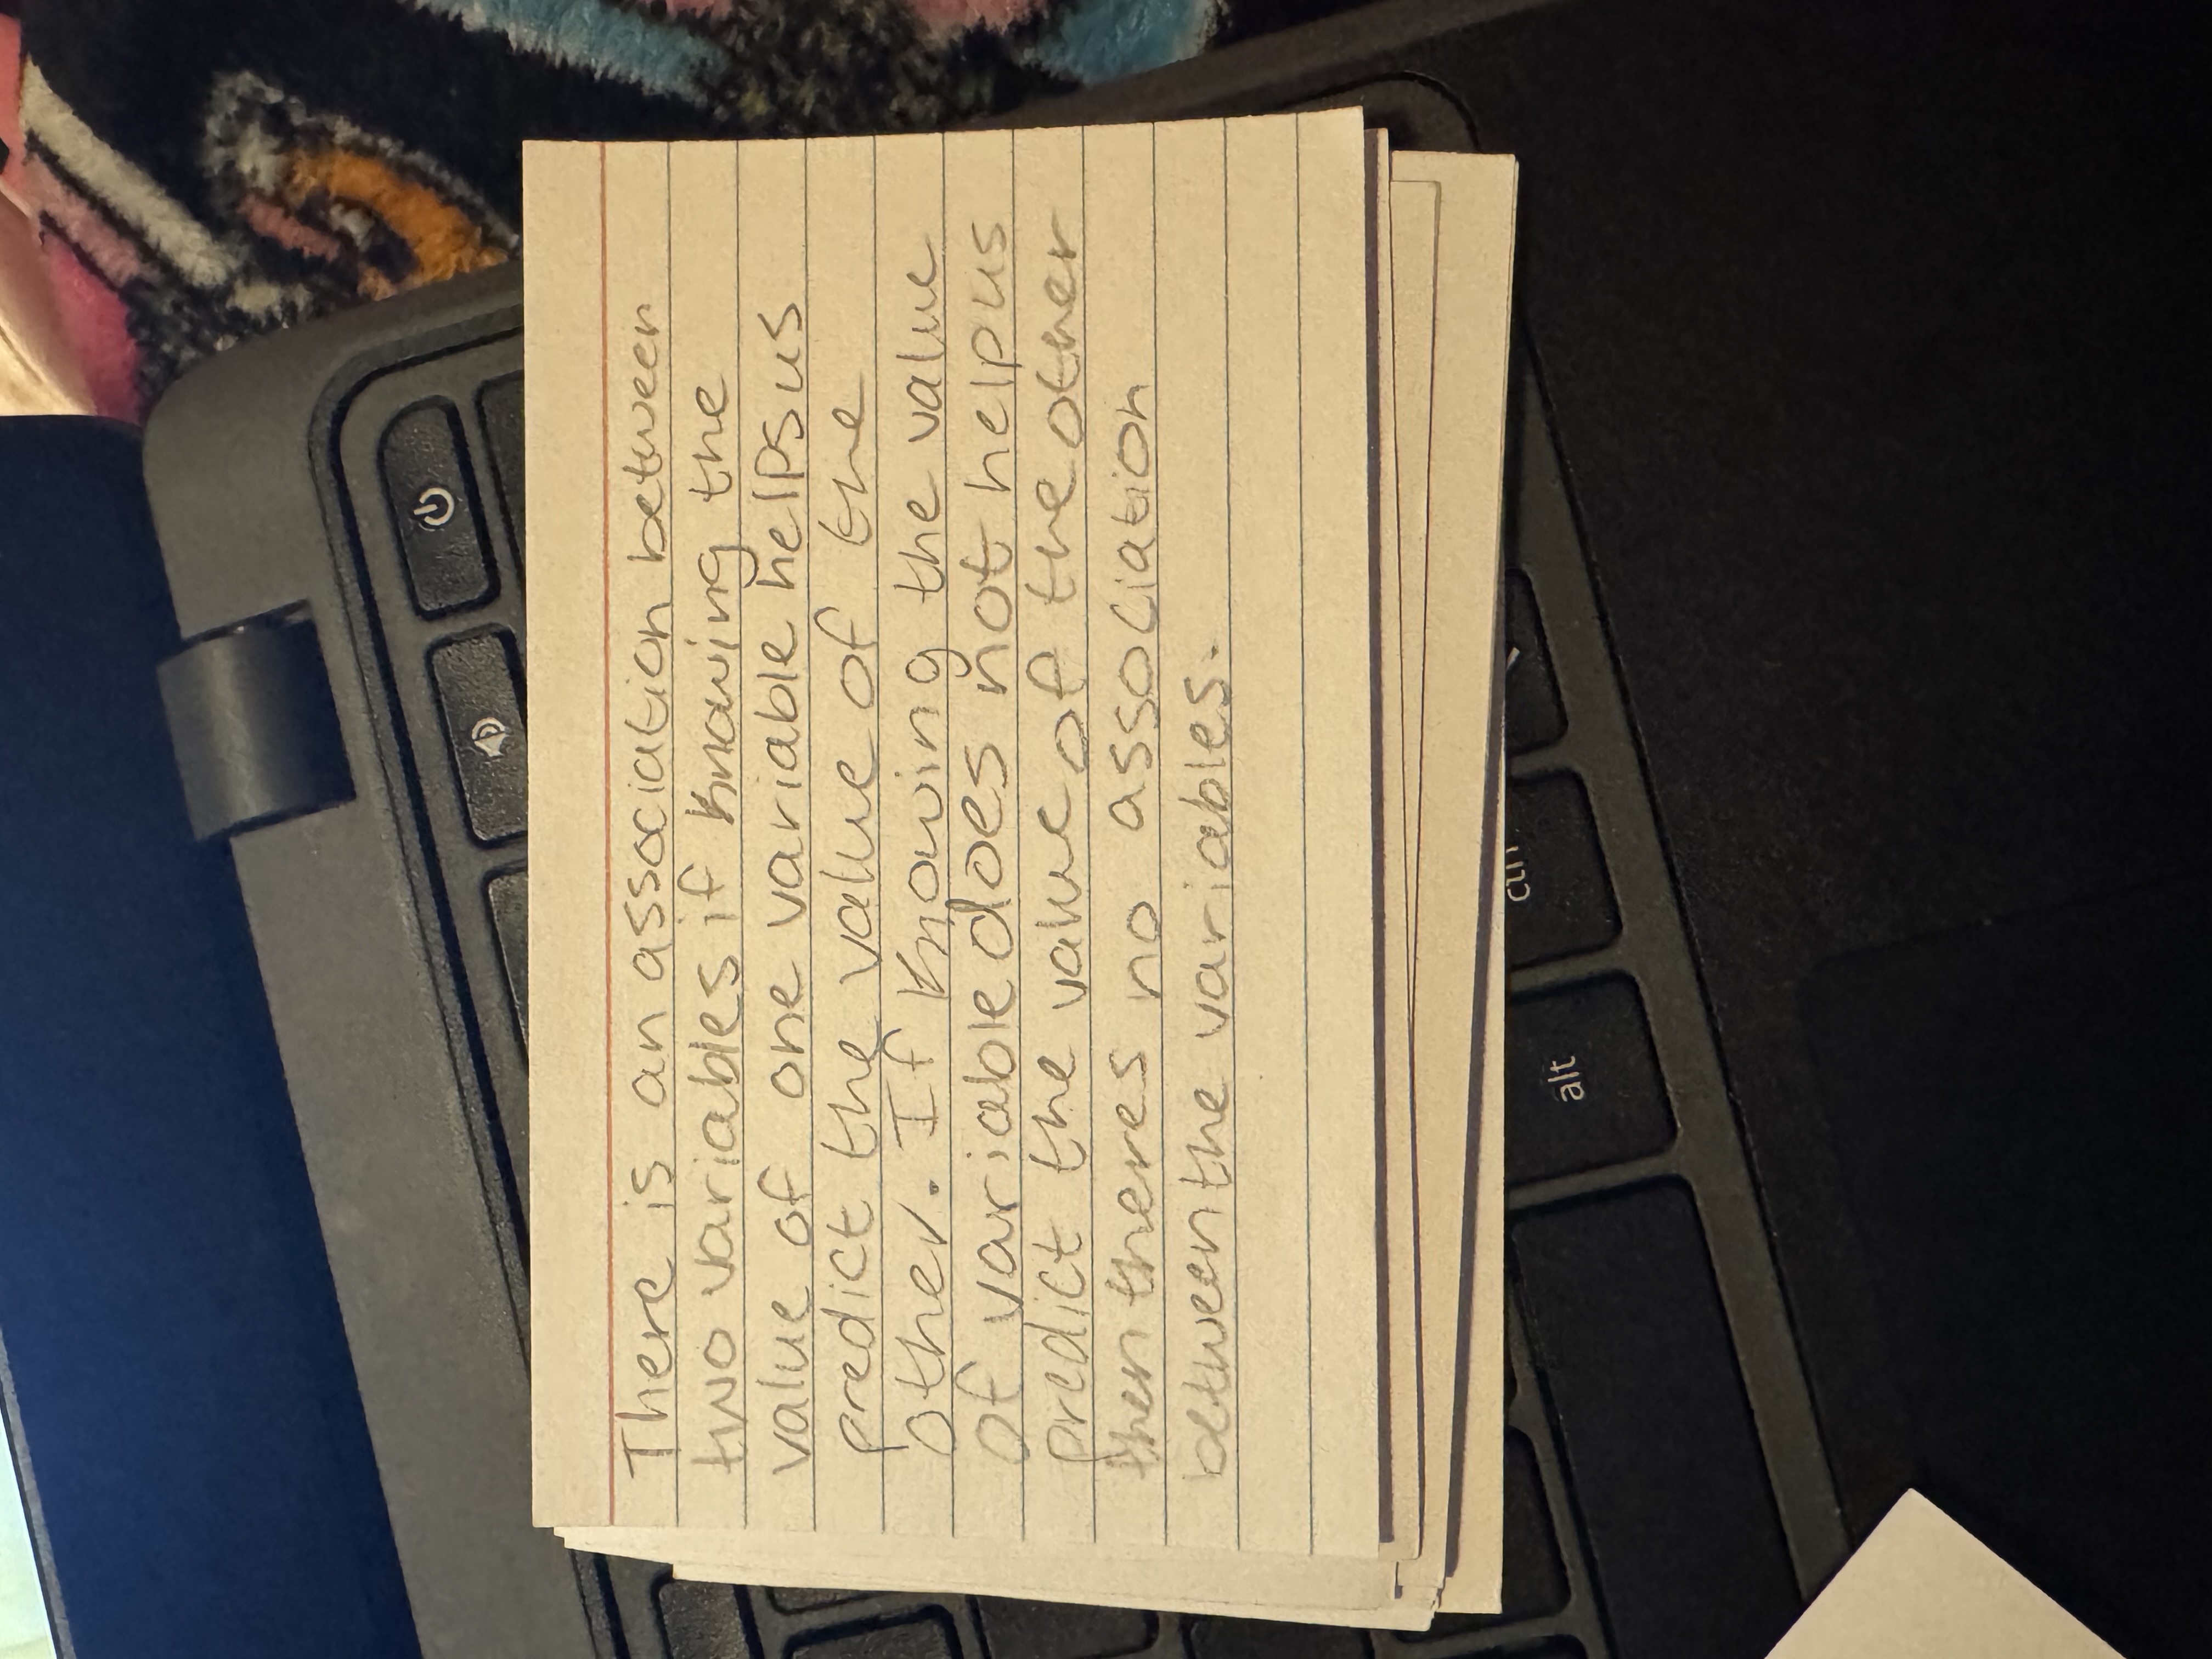 There is an association between
two variables if knowing the
value of one variable helps us
predict the value of the
other. If knowing the value
of variable does not help us
predict the value of the other
then theres no association
between the variables.
alt